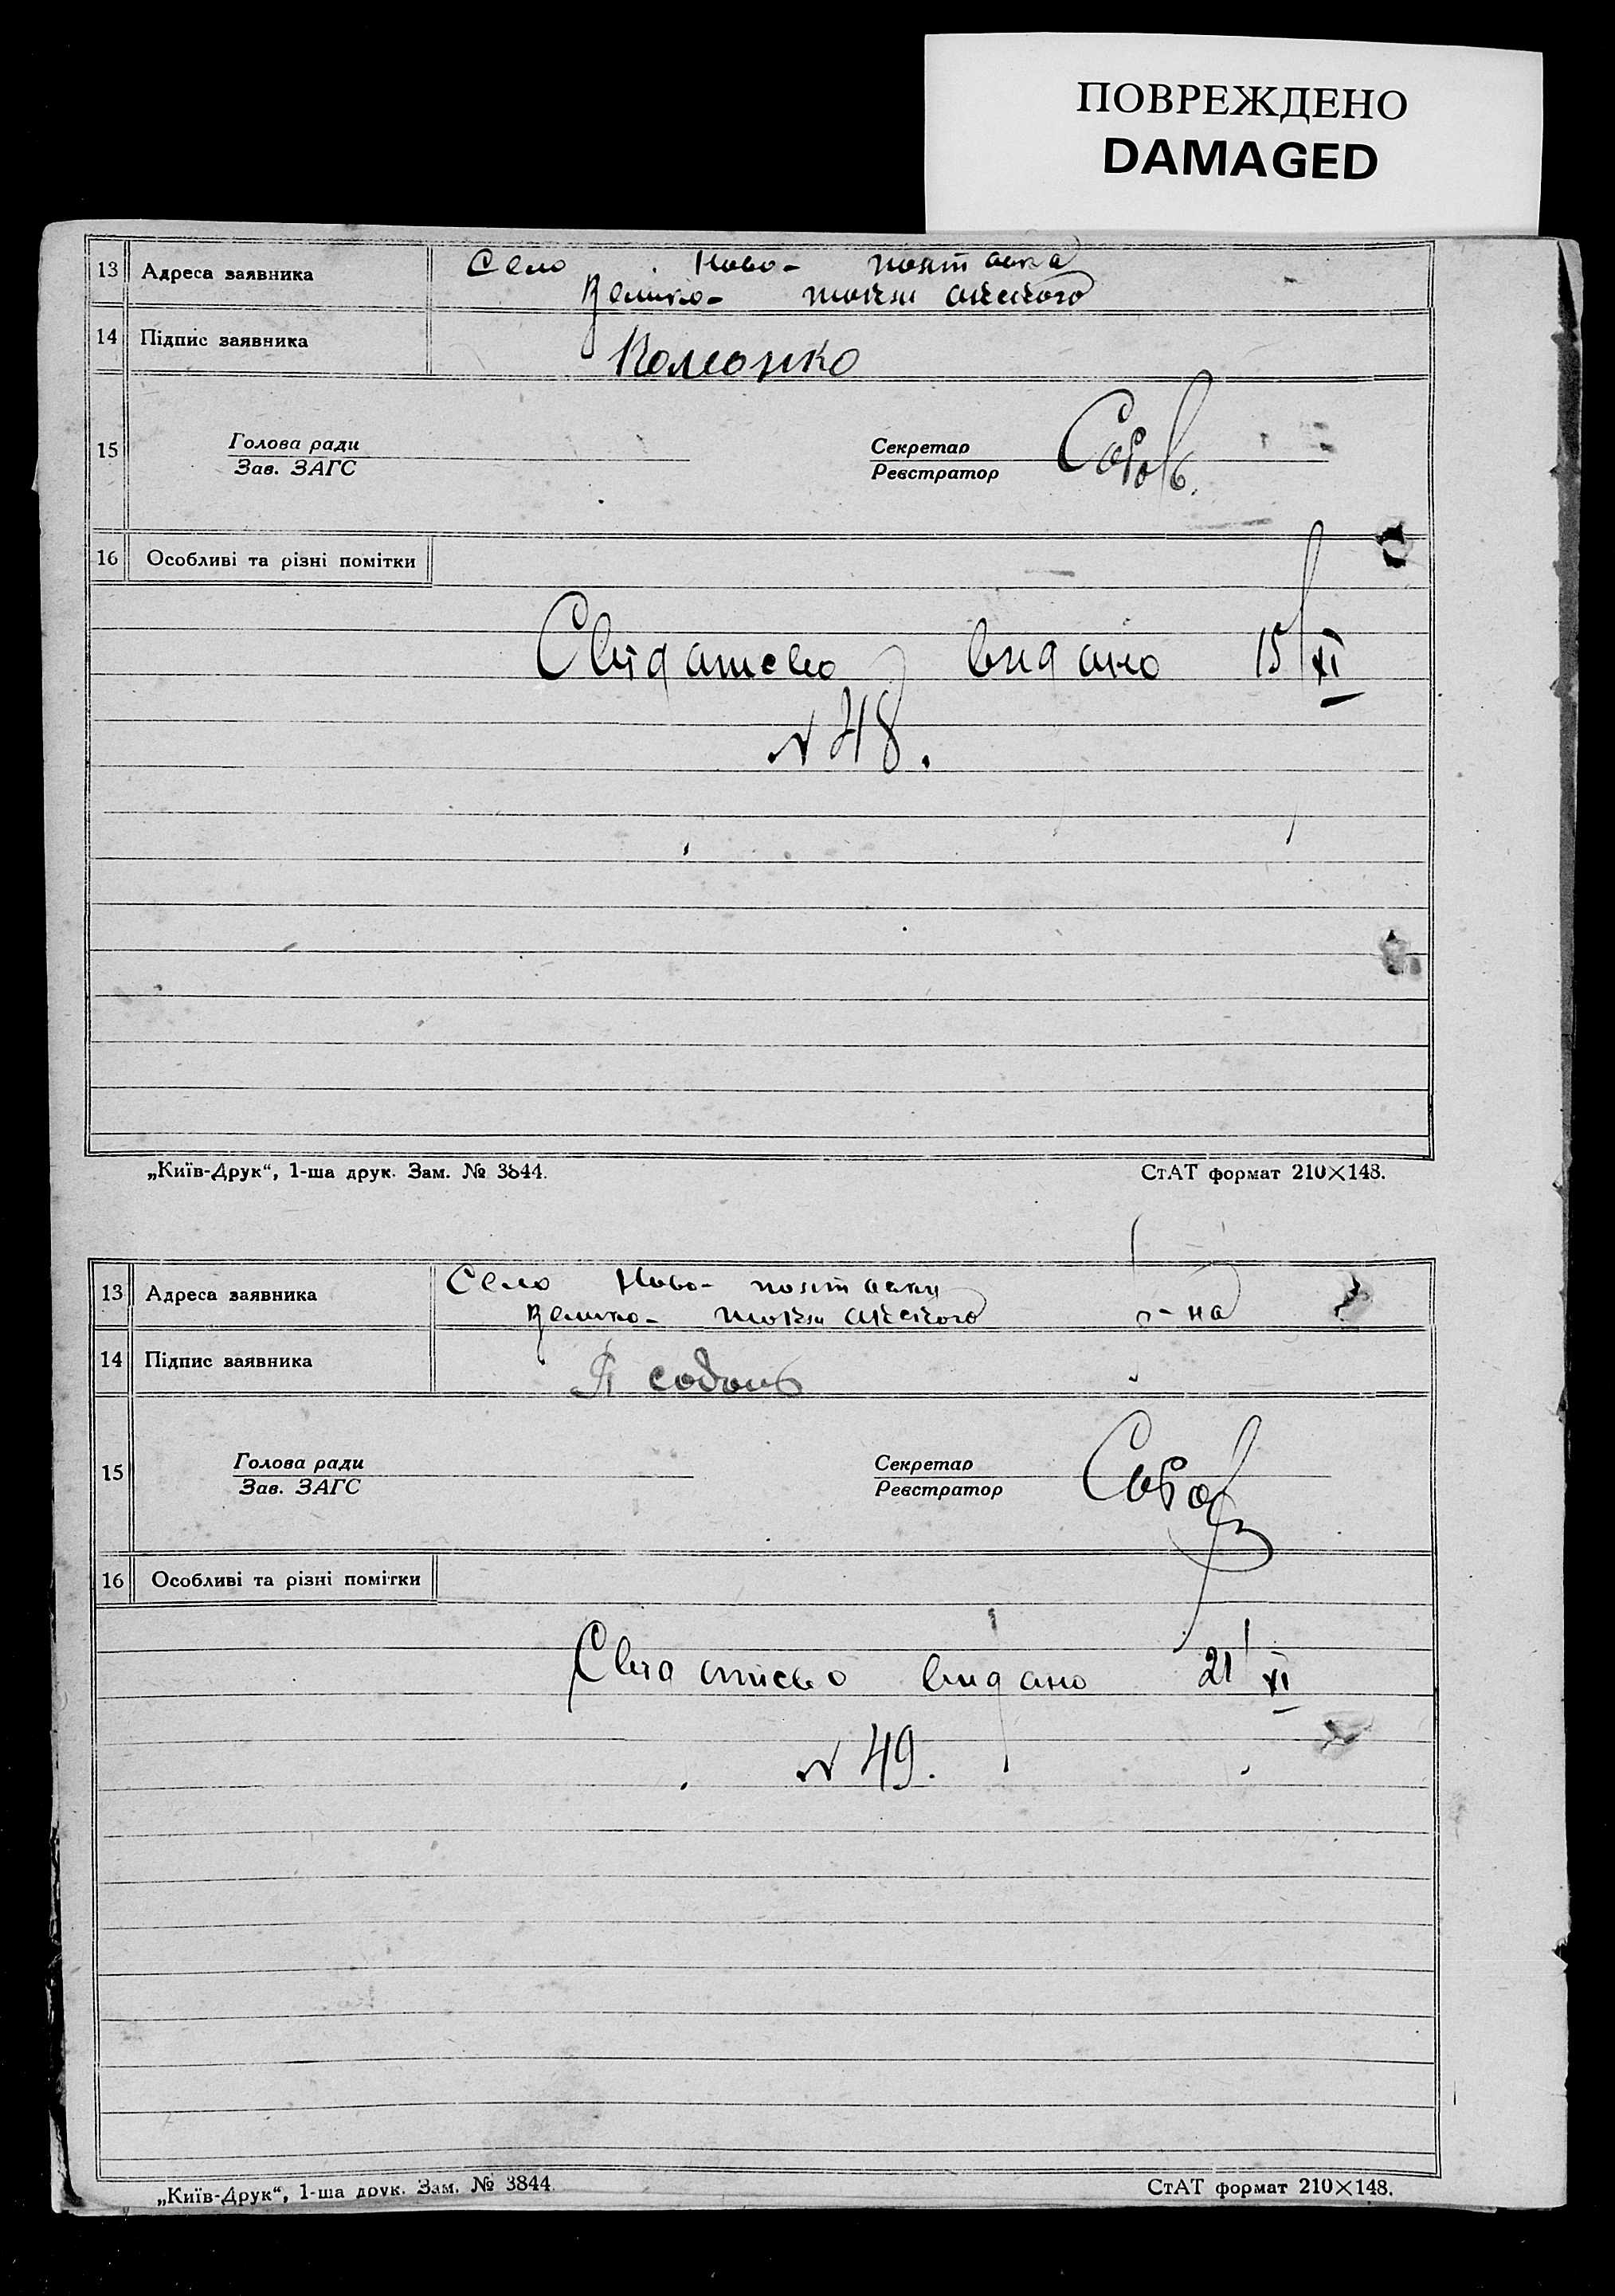 ПОВРЕЖДЕНО
DAMAGED
13 Адреса заявника Село Ново- полтавка
Велико- токмакского
14 Підпис заявника
15 Голова ради Секретар
Зав. ЗАГС Реєстратор
16 Особливі та різні помітки
Свідатсво видано 15/XI
N 48.
„Київ-Друк“, 1-ша друк. Зам. № 3844. СтАТ формат 210×148.
13 Адреса заявника Село Ново- полтавки
Велико- токмакского р-на
14 Підпис заявника
15 Голова ради Секретар
Зав. ЗАГС Реєстратор
16 Особливі та різні помітки
Свідатсво видано 21/XI
N 49.
„Київ-Друк“, 1-ша друк. Зам. № 3844. СтАТ формат 210×148.